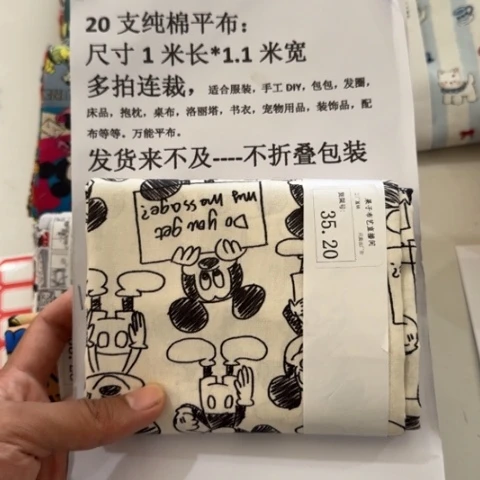 20 支纯棉平布：
尺寸 1 米长*1.1 米宽
多拍连裁，适合服装，手工 DIY，包包，发圈，
床品，抱枕，桌布，洛丽塔，书衣，宠物用品，装饰品，配
布等等。万能平布。
发货来不及----不折叠包装
Do you get
my massage?
35.20
栗子布艺直播间